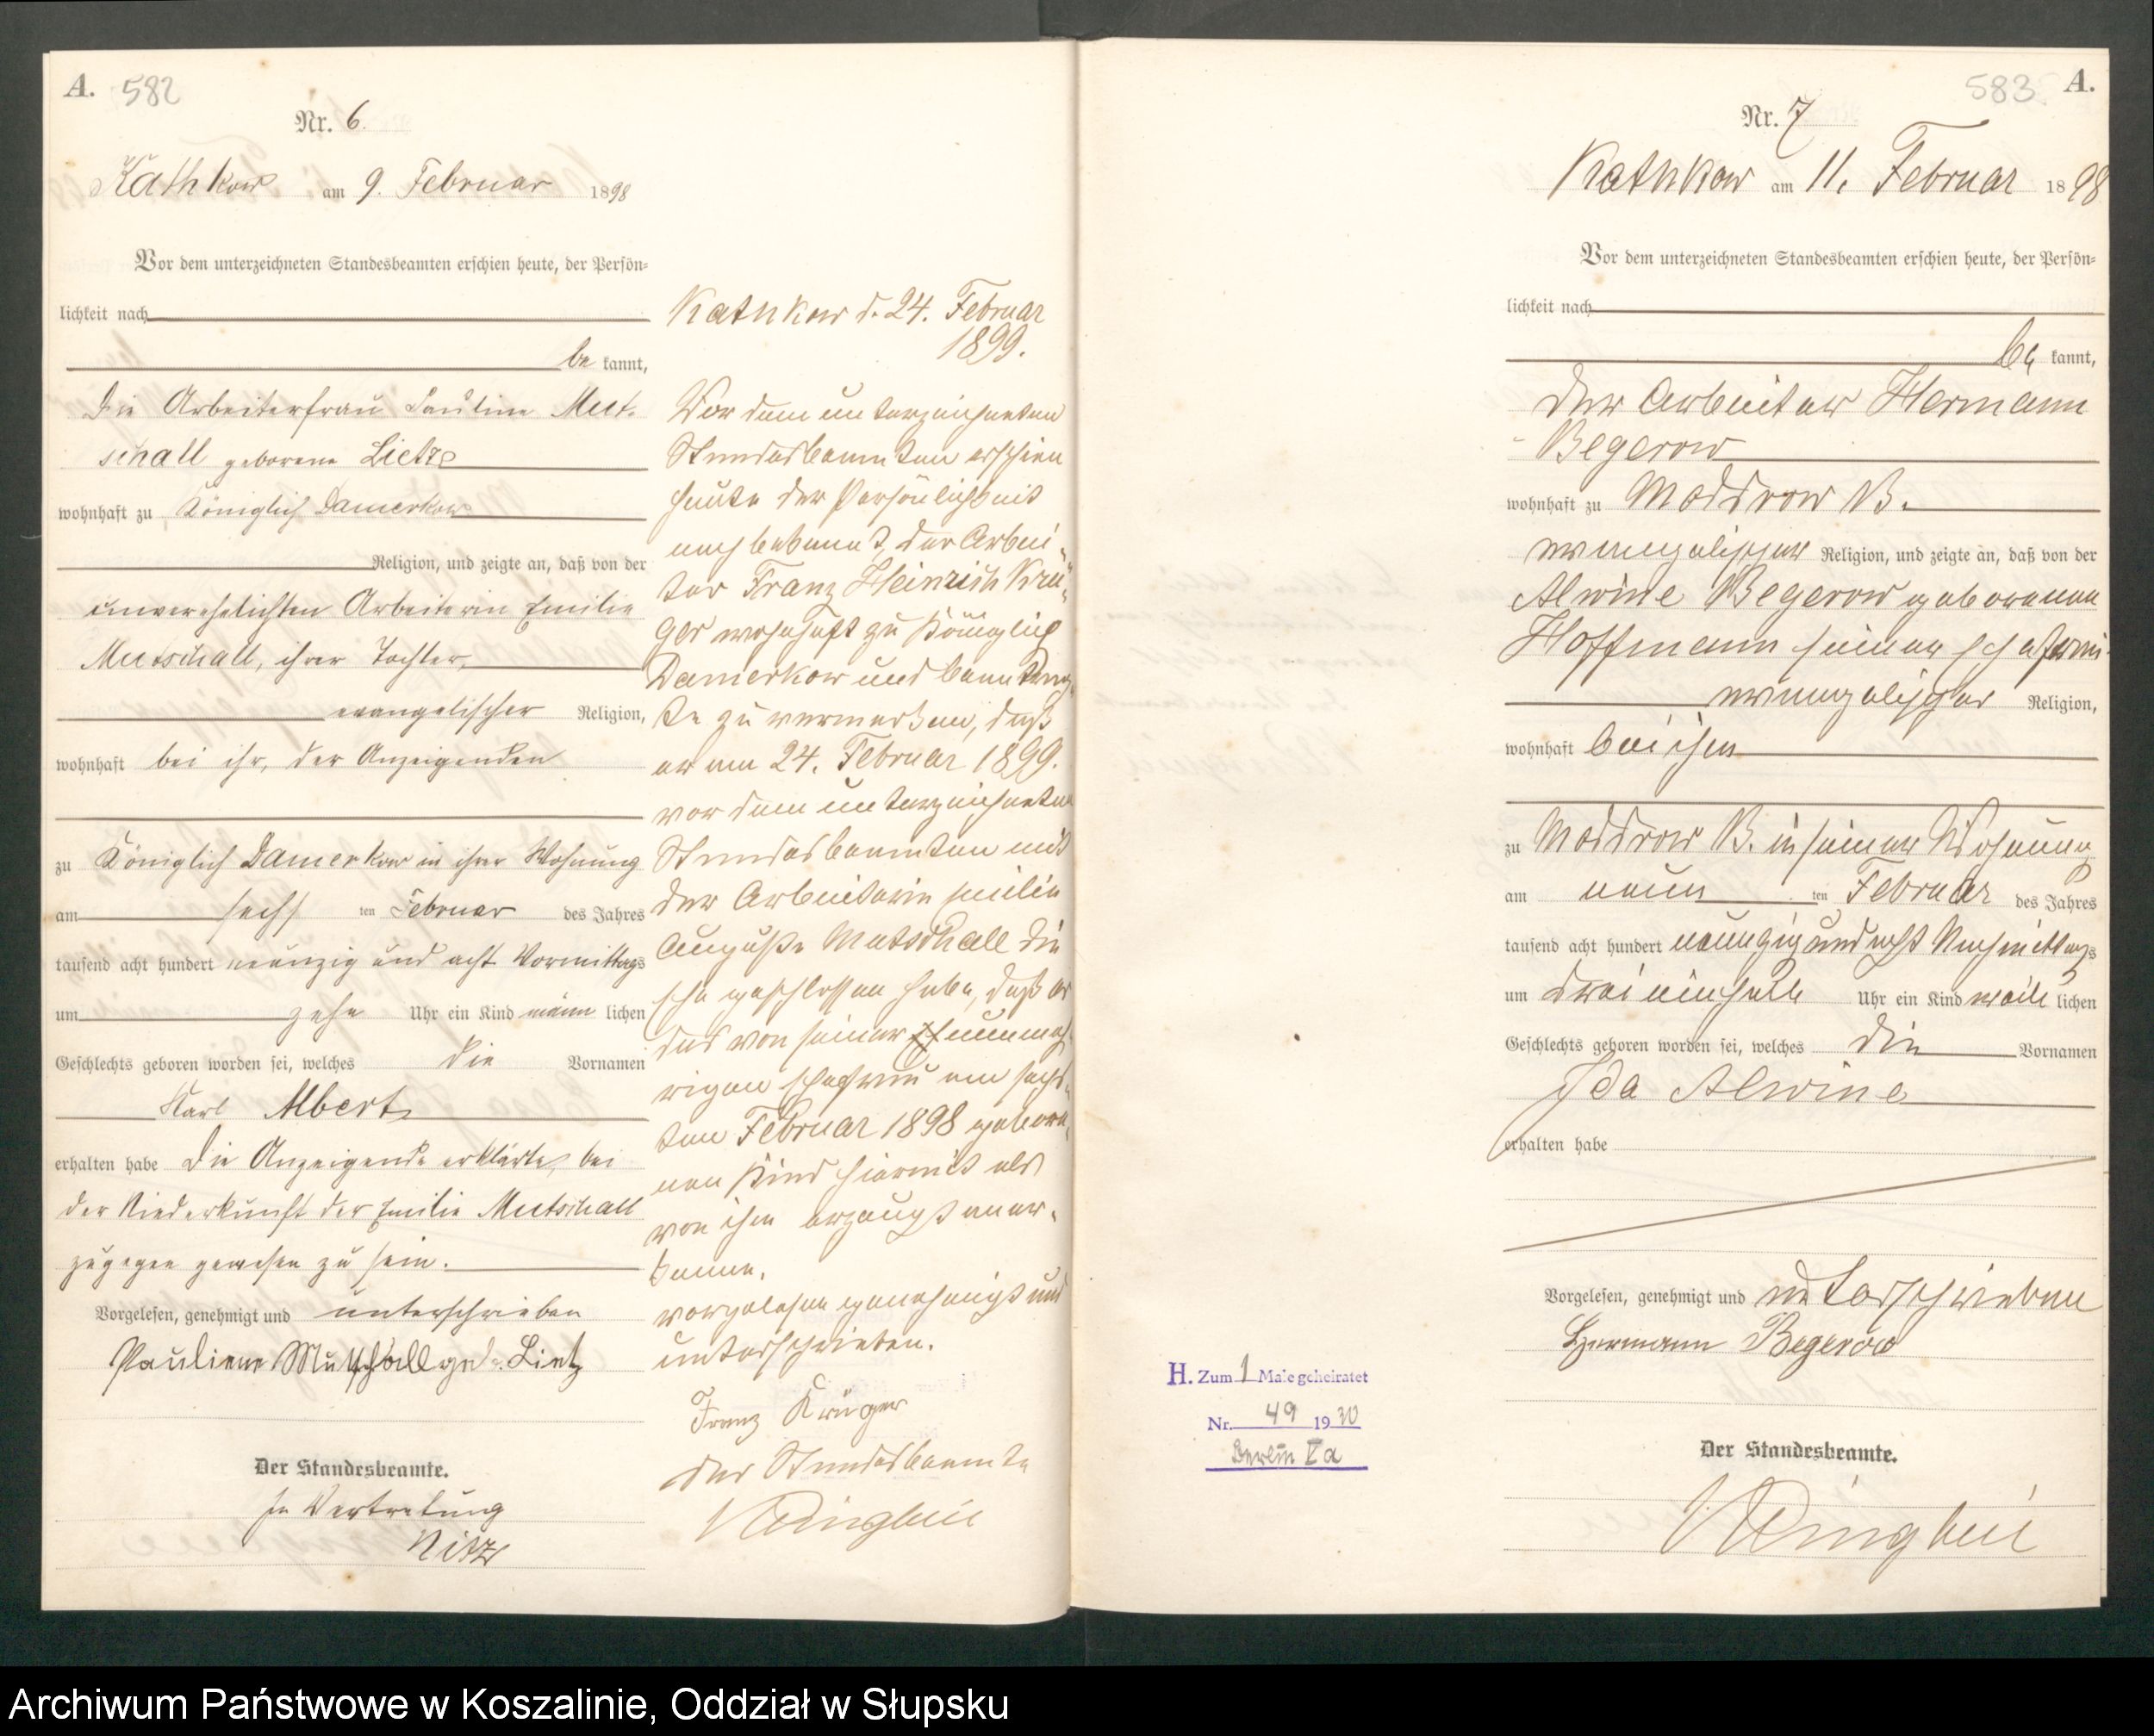 A. 582
Nr. 6.
Kathkow am 9. Februar 1898
Vor dem unterzeichneten Standesbeamten erschien heute, der Persön-
lichkeit nach
be kannt,
die Arbeiterfrau Pauline Mut-
schall geborene Lietz
wohnhaft zu Königlich Damerkow
Religion, und zeigte an, daß von der
unverehelichten Arbeiterin Emilie
Mutschall, ihrer Tochter,
evangelischer Religion,
wohnhaft bei ihr, der Anzeigenden
zu Königlich Damerkow in ihrer Wohnung
am sechs ten Februar des Jahres
tausend acht hundert neunzig und acht Vormittags
um zehn Uhr ein Kind männ lichen
Geschlechts geboren worden sei, welches die Vornamen
Karl Albert
erhalten habe Die Anzeigende erklärte, bei
der Niederkunft der Emilie Mutschall
zugegen gewesen zu sein.
Vorgelesen, genehmigt und unterschrieben
Pauliene Mutschall geb. Lietz
Der Standesbeamte.
In Vertretung
Nitz
Kathkow d. 24. Februar
1899.
Vor dem unterzeichneten
Standesbeamten erschien
heute der Persönlichkeit
nach bekannt, der Arbei-
ter Franz Heinrich Krü-
ger wohnhaft zu Königlich
Damerkow und beantrag-
te zu vermerken, daß
er am 24. Februar 1899.
vor dem unterzeichneten
Standesbeamten mit
der Arbeiterin Emilie
Auguste Mutschall die
Ehe geschlossen habe, daß er
das von seiner nunmeh-
rigen Ehefrau am sechs-
ten Februar 1898 gebore-
nen Kind hiermit als
von ihm erzeugt aner-
kenne.
vorgelesen genehmigt und
unterschrieben.
Franz Krüger
Der Standesbeamte
583 A.
Nr. 7
Kathkow am 11. Februar 1898
Vor dem unterzeichneten Standesbeamten erschien heute, der Persön-
lichkeit nach
be kannt,
der Arbeiter Hermann
Begerow
wohnhaft zu Moddrow B.
evangelischer Religion, und zeigte an, daß von der
Alwine Begerow geborenen
Hoffmann seiner Ehefrau
evangelischer Religion,
wohnhaft bei ihm
zu Moddrow B. in seiner Wohnung
am neun ten Februar des Jahres
tausend acht hundert neunzig und acht Nachmittags
um drei einhalb Uhr ein Kind weib lichen
Geschlechts geboren worden sei, welches die Vornamen
Ida Alwine
erhalten habe
Vorgelesen, genehmigt und unterschrieben
Hermann Begerow
Der Standesbeamte.
H. Zum 1 Male geheiratet
Nr. 49 1930
Berlin Va
Archiwum Państwowe w Koszalinie, Oddział w Słupsku